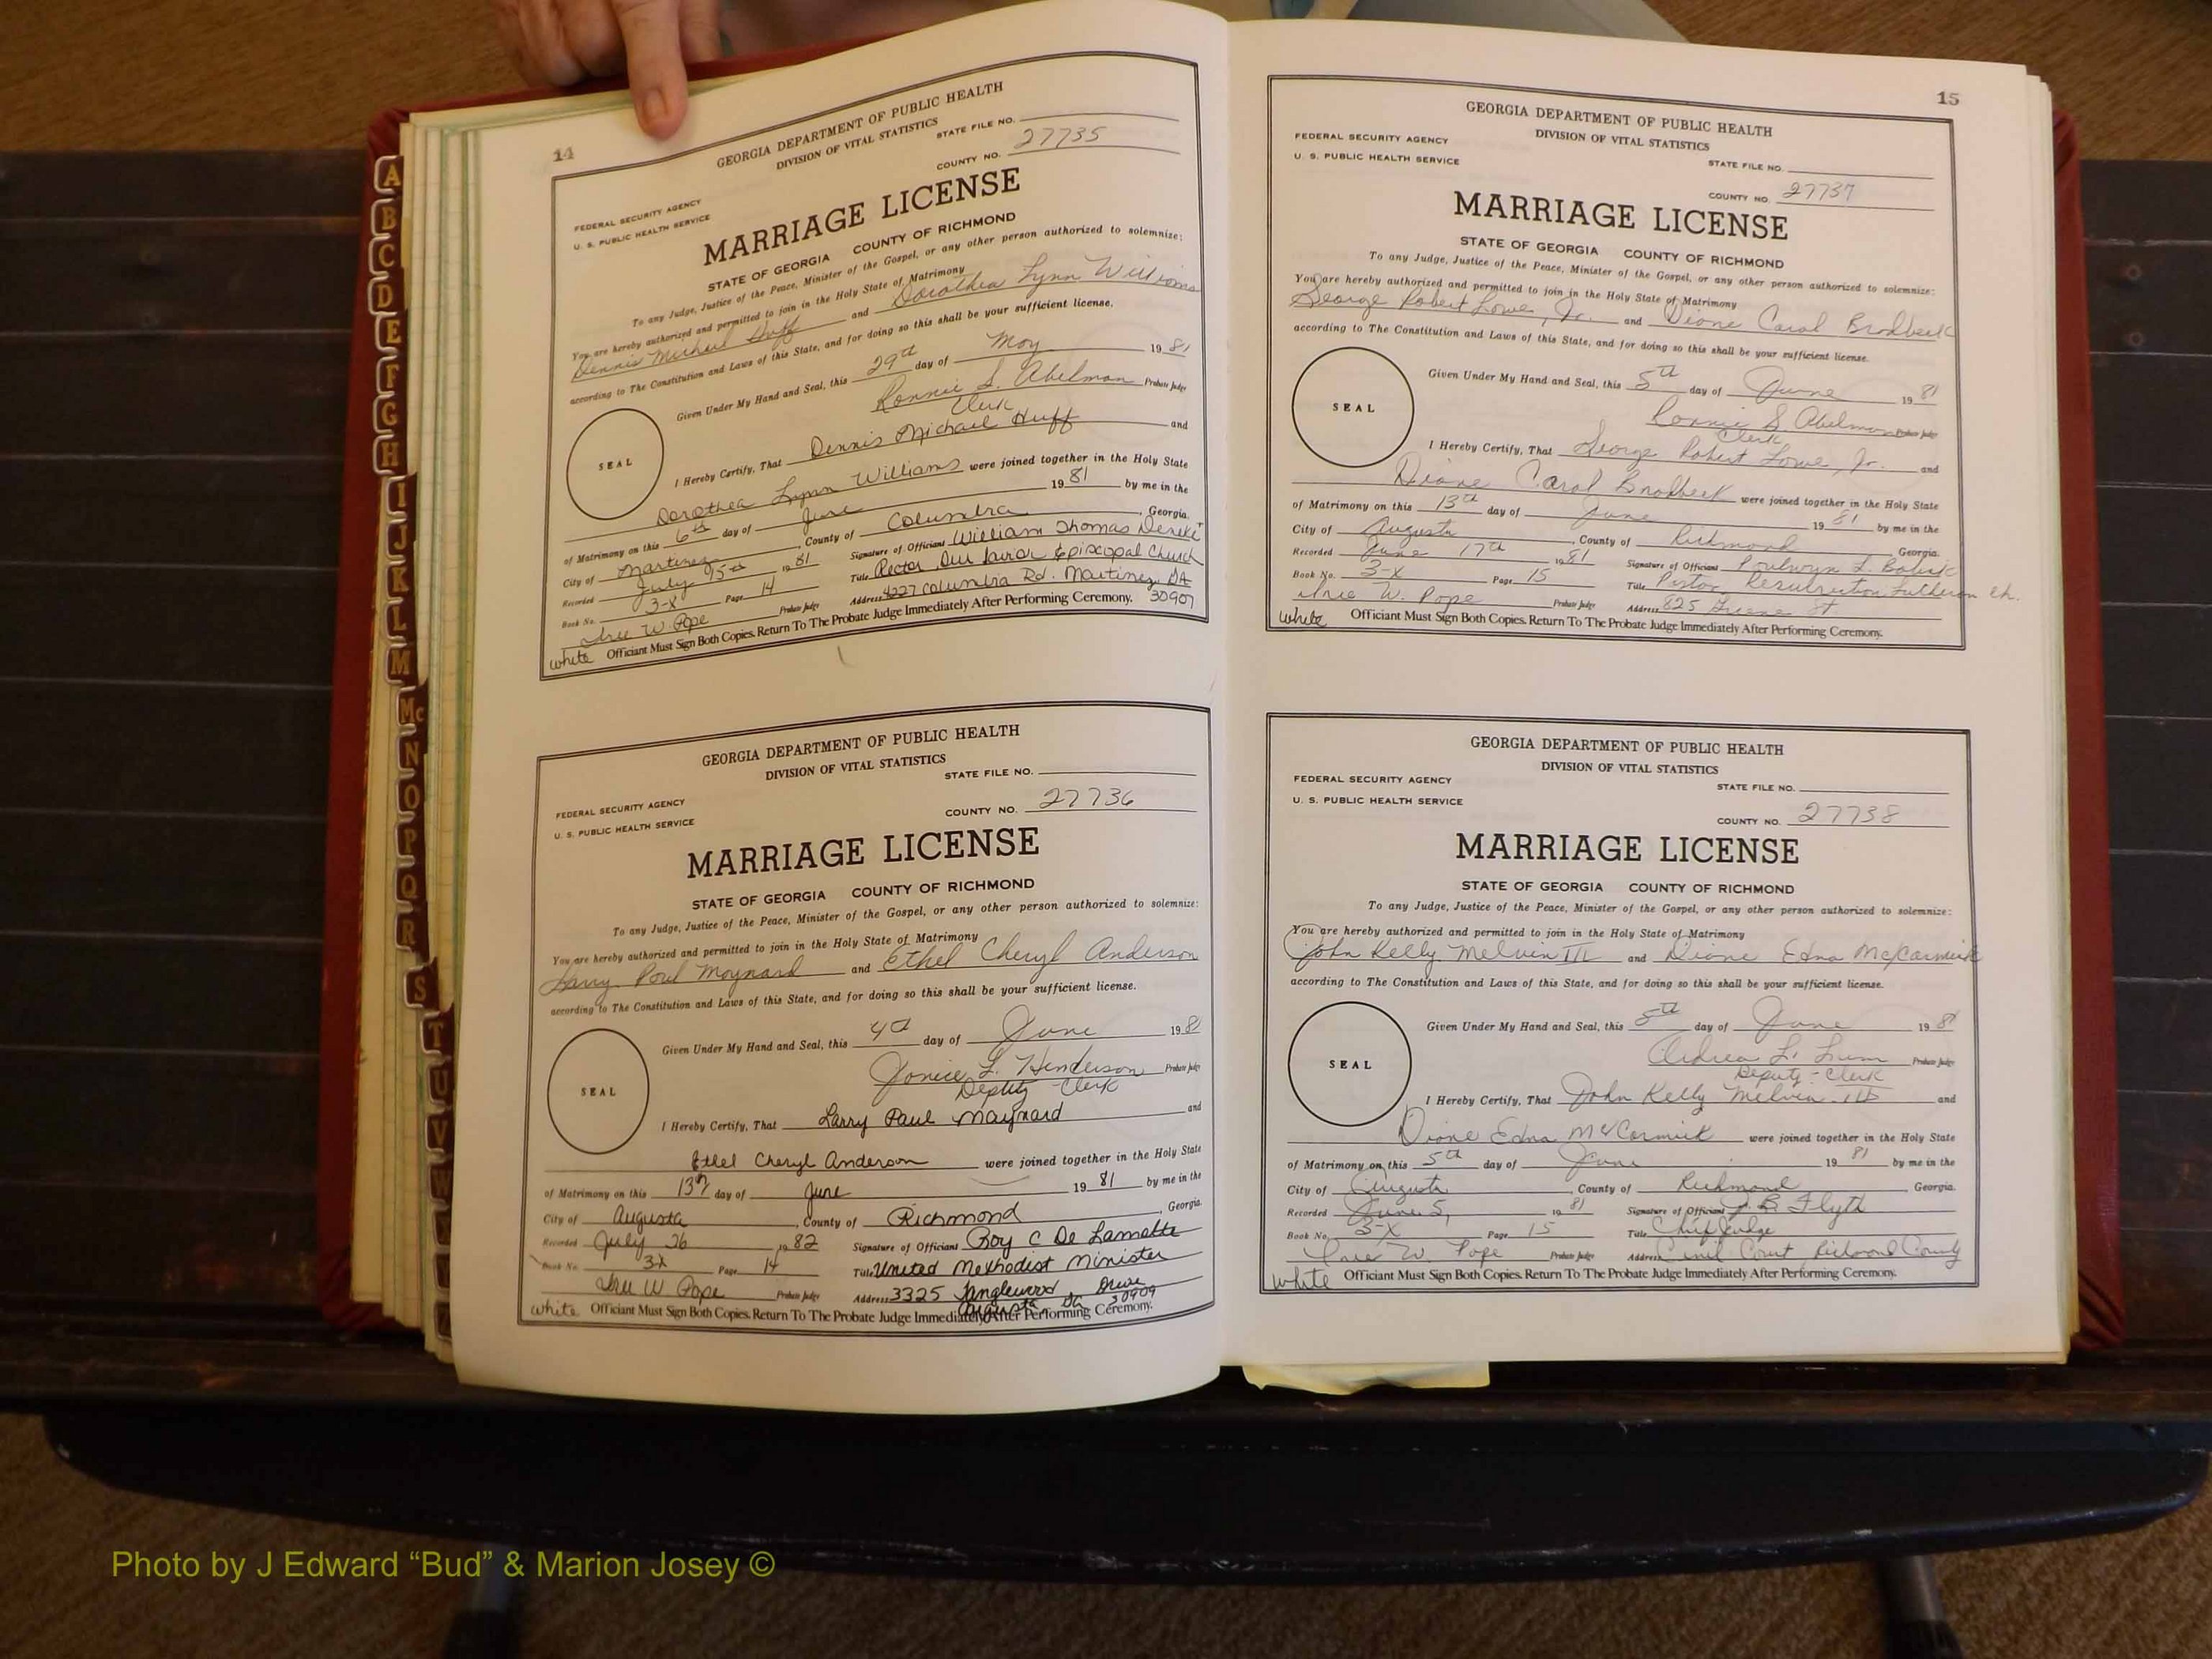 14
GEORGIA DEPARTMENT OF PUBLIC HEALTH
DIVISION OF VITAL STATISTICS
STATE FILE NO.
COUNTY NO. 27735
FEDERAL SECURITY AGENCY
U. S. PUBLIC HEALTH SERVICE
MARRIAGE LICENSE
STATE OF GEORGIA COUNTY OF RICHMOND
To any Judge, Justice of the Peace, Minister of the Gospel, or any other person authorized to solemnize:
You are hereby authorized and permitted to join in the Holy State of Matrimony
Dennis Michael Huff and Dorothea Lynn Williams
according to The Constitution and Laws of this State, and for doing so this shall be your sufficient license.
Given Under My Hand and Seal, this 29th day of May 1981
Ronnie S. Abelman Probate Judge
Clerk
SEAL
I Hereby Certify, That Dennis Michael Huff and
Dorothea Lynn Williams were joined together in the Holy State
of Matrimony on this 6th day of June 1981 by me in the
City of Martinez, County of Columbia, Georgia.
Recorded July 15th 1981 Signature of Officiant William Thomas
Book No. 3-X Page 14 Title Rector, Our Savior Episcopal Church
W. Pope Probate Judge Address 4227 Columbia Rd. Martinez, GA 30907
white Officiant Must Sign Both Copies. Return To The Probate Judge Immediately After Performing Ceremony.
GEORGIA DEPARTMENT OF PUBLIC HEALTH
DIVISION OF VITAL STATISTICS
STATE FILE NO.
FEDERAL SECURITY AGENCY
U. S. PUBLIC HEALTH SERVICE
COUNTY NO. 27736
MARRIAGE LICENSE
STATE OF GEORGIA COUNTY OF RICHMOND
To any Judge, Justice of the Peace, Minister of the Gospel, or any other person authorized to solemnize:
You are hereby authorized and permitted to join in the Holy State of Matrimony
Larry Paul Maynard and Ethel Cheryl Anderson
according to The Constitution and Laws of this State, and for doing so this shall be your sufficient license.
Given Under My Hand and Seal, this 4th day of June 1981
Janice L. Henderson Probate Judge
Deputy-Clerk
SEAL
I Hereby Certify, That Larry Paul Maynard and
Ethel Cheryl Anderson were joined together in the Holy State
of Matrimony on this 13th day of June 1981 by me in the
City of Augusta, County of Richmond, Georgia.
Recorded July 26 1982 Signature of Officiant Roy C De Lamotte
Book No. 3X Page 14 Title United Methodist Minister
W Pope Probate Judge Address 3325 Tanglewood Drive
Augusta Ga 30909
white Officiant Must Sign Both Copies. Return To The Probate Judge Immediately After Performing Ceremony.
15
GEORGIA DEPARTMENT OF PUBLIC HEALTH
DIVISION OF VITAL STATISTICS
FEDERAL SECURITY AGENCY
U. S. PUBLIC HEALTH SERVICE
STATE FILE NO.
COUNTY NO. 27737
MARRIAGE LICENSE
STATE OF GEORGIA COUNTY OF RICHMOND
To any Judge, Justice of the Peace, Minister of the Gospel, or any other person authorized to solemnize:
You are hereby authorized and permitted to join in the Holy State of Matrimony
George Robert Lowe, Jr. and Diane Carol Brodbeck
according to The Constitution and Laws of this State, and for doing so this shall be your sufficient license.
Given Under My Hand and Seal, this 5th day of June 1981
Ronnie S Abelman Probate Judge
Clerk
SEAL
I Hereby Certify, That George Robert Lowe, Jr. and
Diane Carol Brodbeck were joined together in the Holy State
of Matrimony on this 13th day of June 1981 by me in the
City of Augusta, County of Richmond Georgia.
Recorded June 17th 1981 Signature of Officiant
Book No. 3-X Page 15 Title Pastor Resurrection Lutheran Ch.
W. Pope Probate Judge Address 825 Greene St
white Officiant Must Sign Both Copies. Return To The Probate Judge Immediately After Performing Ceremony.
GEORGIA DEPARTMENT OF PUBLIC HEALTH
DIVISION OF VITAL STATISTICS
FEDERAL SECURITY AGENCY
U. S. PUBLIC HEALTH SERVICE
STATE FILE NO.
COUNTY NO. 27738
MARRIAGE LICENSE
STATE OF GEORGIA COUNTY OF RICHMOND
To any Judge, Justice of the Peace, Minister of the Gospel, or any other person authorized to solemnize:
You are hereby authorized and permitted to join in the Holy State of Matrimony
John Kelly Melvin III and Diane Edna McCormick
according to The Constitution and Laws of this State, and for doing so this shall be your sufficient license.
Given Under My Hand and Seal, this 5th day of June 1981
L. Probate Judge
Deputy-Clerk
SEAL
I Hereby Certify, That John Kelly Melvin III and
Diane Edna McCormick were joined together in the Holy State
of Matrimony on this 5th day of June 1981 by me in the
City of Augusta, County of Richmond, Georgia.
Recorded June 5, 1981 Signature of Officiant B. Flyth
Book No. 3-X Page 15 Title Chief Judge
W. Pope Probate Judge Address Civil Court Richmond County
white Officiant Must Sign Both Copies. Return To The Probate Judge Immediately After Performing Ceremony.
A
B
C
D
E
F
G
H
I
J
K
L
M
Mc
N
O
P
Q
R
S
T
U
V
W
Photo by J Edward “Bud” & Marion Josey ©